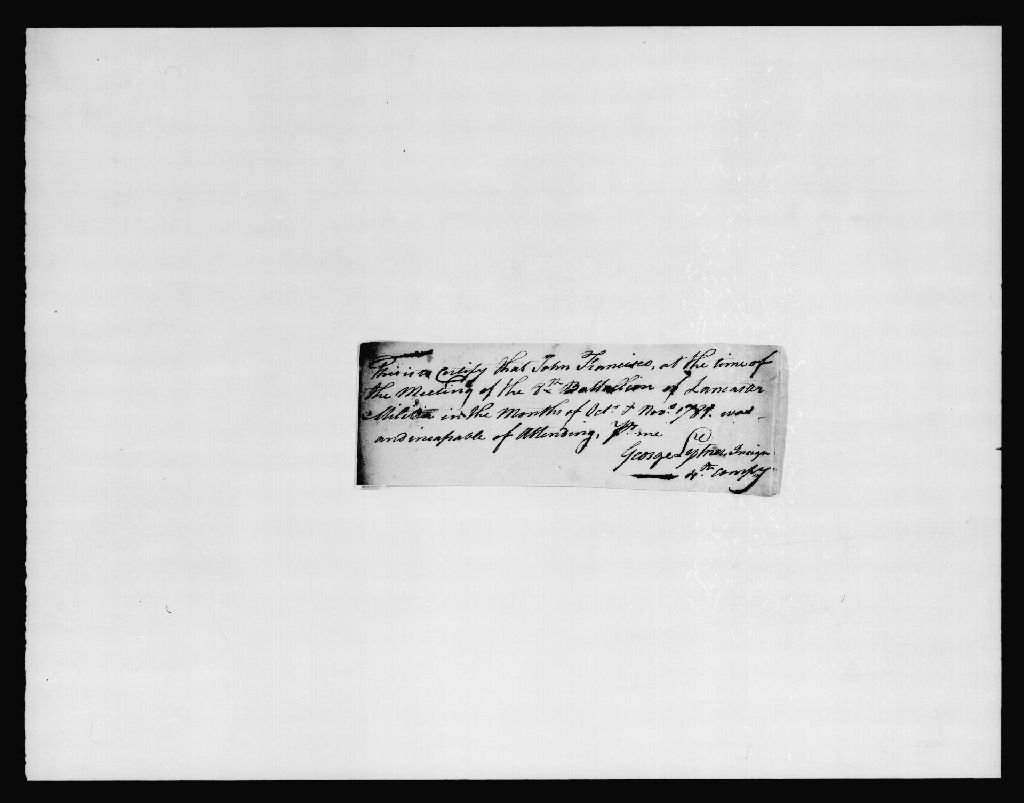 This is to Certify that John Francisco, at the time of
the Meeting of the 8th Battalion of Lancaster
Militia in the Months of Octr & Novr 1781. was
and incapable of Attending, Pr me
George Insign
4th Compy